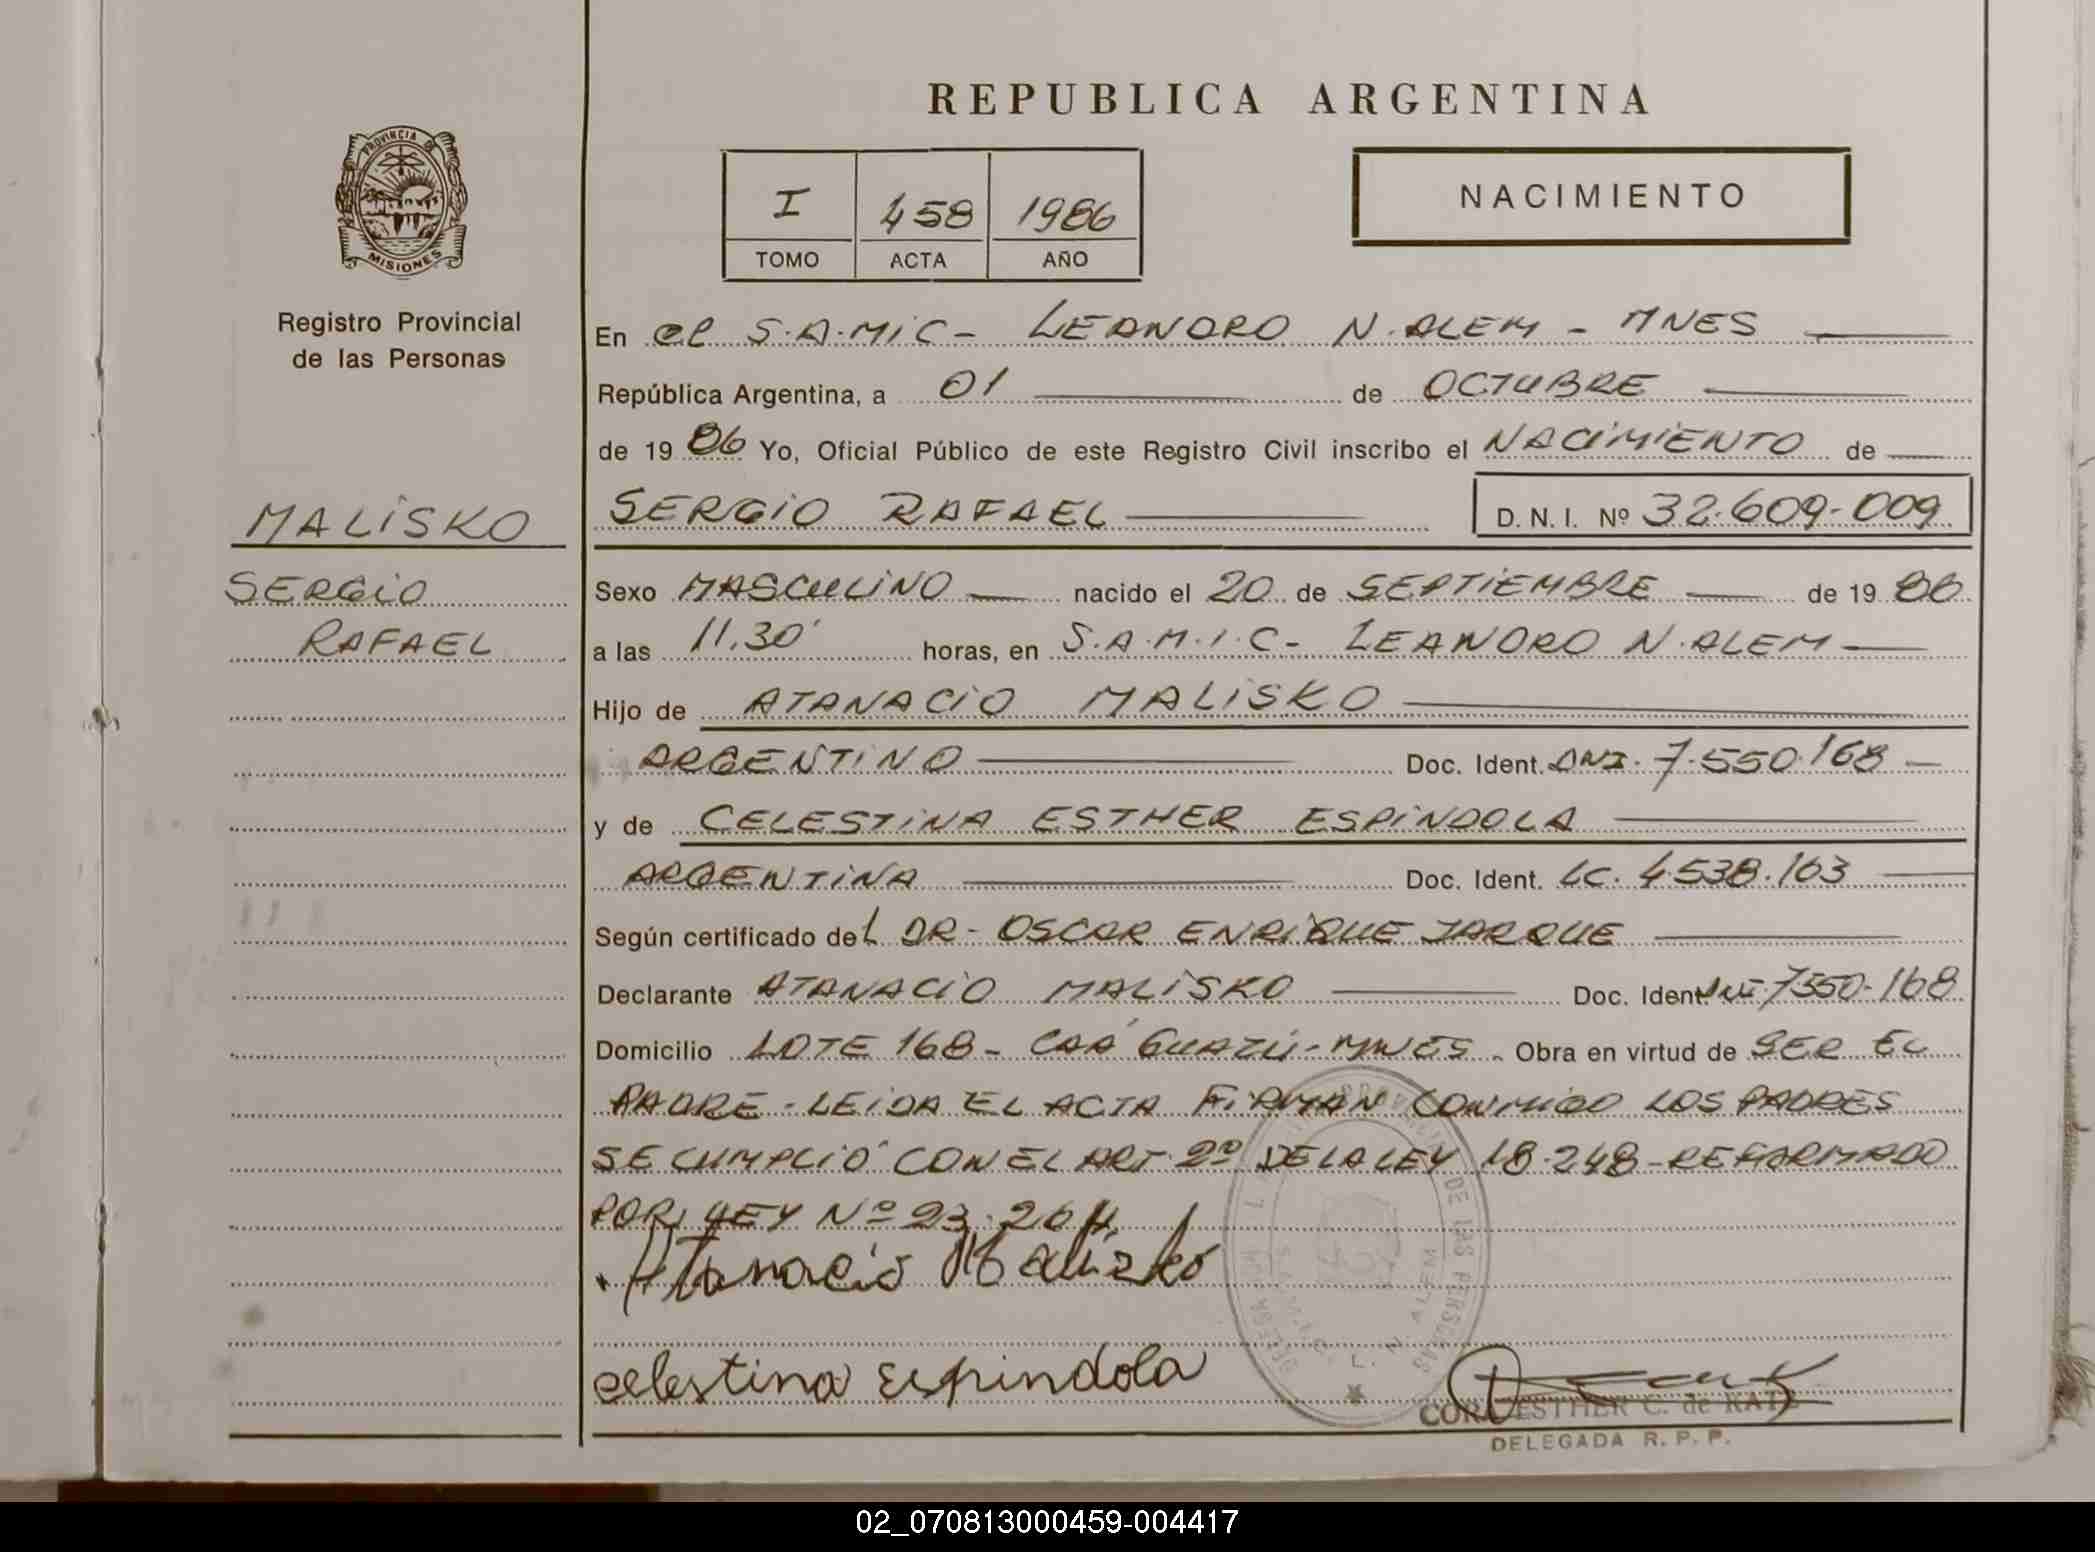 REPUBLICA ARGENTINA
PROVINCIA DE
MISIONES
Registro Provincial
de las Personas
I 458 1986
TOMO ACTA AÑO
NACIMIENTO
En el S.A.MiC- LEANDRO N. ALEM - MNES
República Argentina, a 01 de OCTUBRE
de 19 86 Yo, Oficial Público de este Registro Civil inscribo el NACiMiENTO de
MALiSKO
SERGiO RAFAEL D. N. I. Nº 32.609.009
SERGiO
RAFAEL
Sexo MASCULiNO nacido el 20 de SEPTiEMBRE de 19 86
a las 11.30' horas, en S.A.M.I.C- LEANDRO N. ALEM
Hijo de ATANACiO MALiSKO
ARGENTiNO Doc. Ident. DNI. 7.550.168
y de CELESTiNA ESTHER ESPiNDOLA
ARGENTiNA Doc. Ident. LC. 4.538.163
Según certificado del DR. OSCAR ENRiQUE JARQUE
Declarante ATANACiO MALiSKO Doc. Ident. DNI 7550.168
Domicilio LOTE 168 - CAÁ GUAZÚ - MNES. Obra en virtud de SER EL
PADRE - LEiDA EL ACTA FiRMAN CONMiGO LOS PADRES
SE CUMPLiÓ CON EL ART. 2º DE LA LEY 18.248 - REFORMADO
POR LEY Nº 23.264
Atanacio Malisko
DE LAS PERSONAS
L. N. ALEM
celestina Espindola
CORA ESTHER C. de KATZ
DELEGADA R. P. P.
02_070813000459-004417